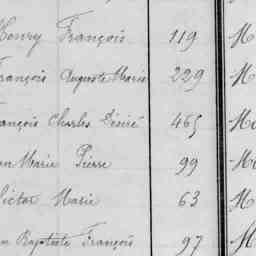 Henry François 119
François Auguste Marie 229
François Charles Désiré 465
Marie Pierre 99
Victor Marie 63
Baptiste François 97